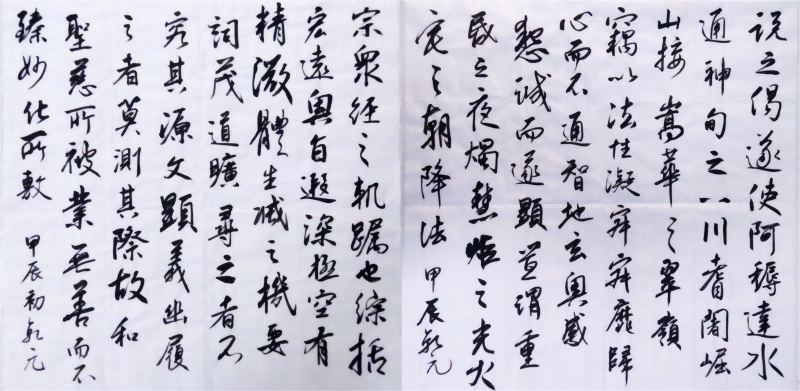 說之偈遂使阿耨達水
通神甸之八川耆闍崛
山接嵩華之翠嶺
竊以法性凝寂寂靡歸
心而不通智地玄奧感
懇誠而遂顯豈謂重
昏之夜燭慧炬之光火
宅之朝降法 甲辰乾元
宗眾經之軌躅也綜括
宏遠奧旨遐深極空有
精微體生滅之機要
詞茂道曠尋之者不
究其源文顯義幽履
之者莫測其際故知
聖慈所被業無善而不
臻妙化所敷 甲辰初乾元